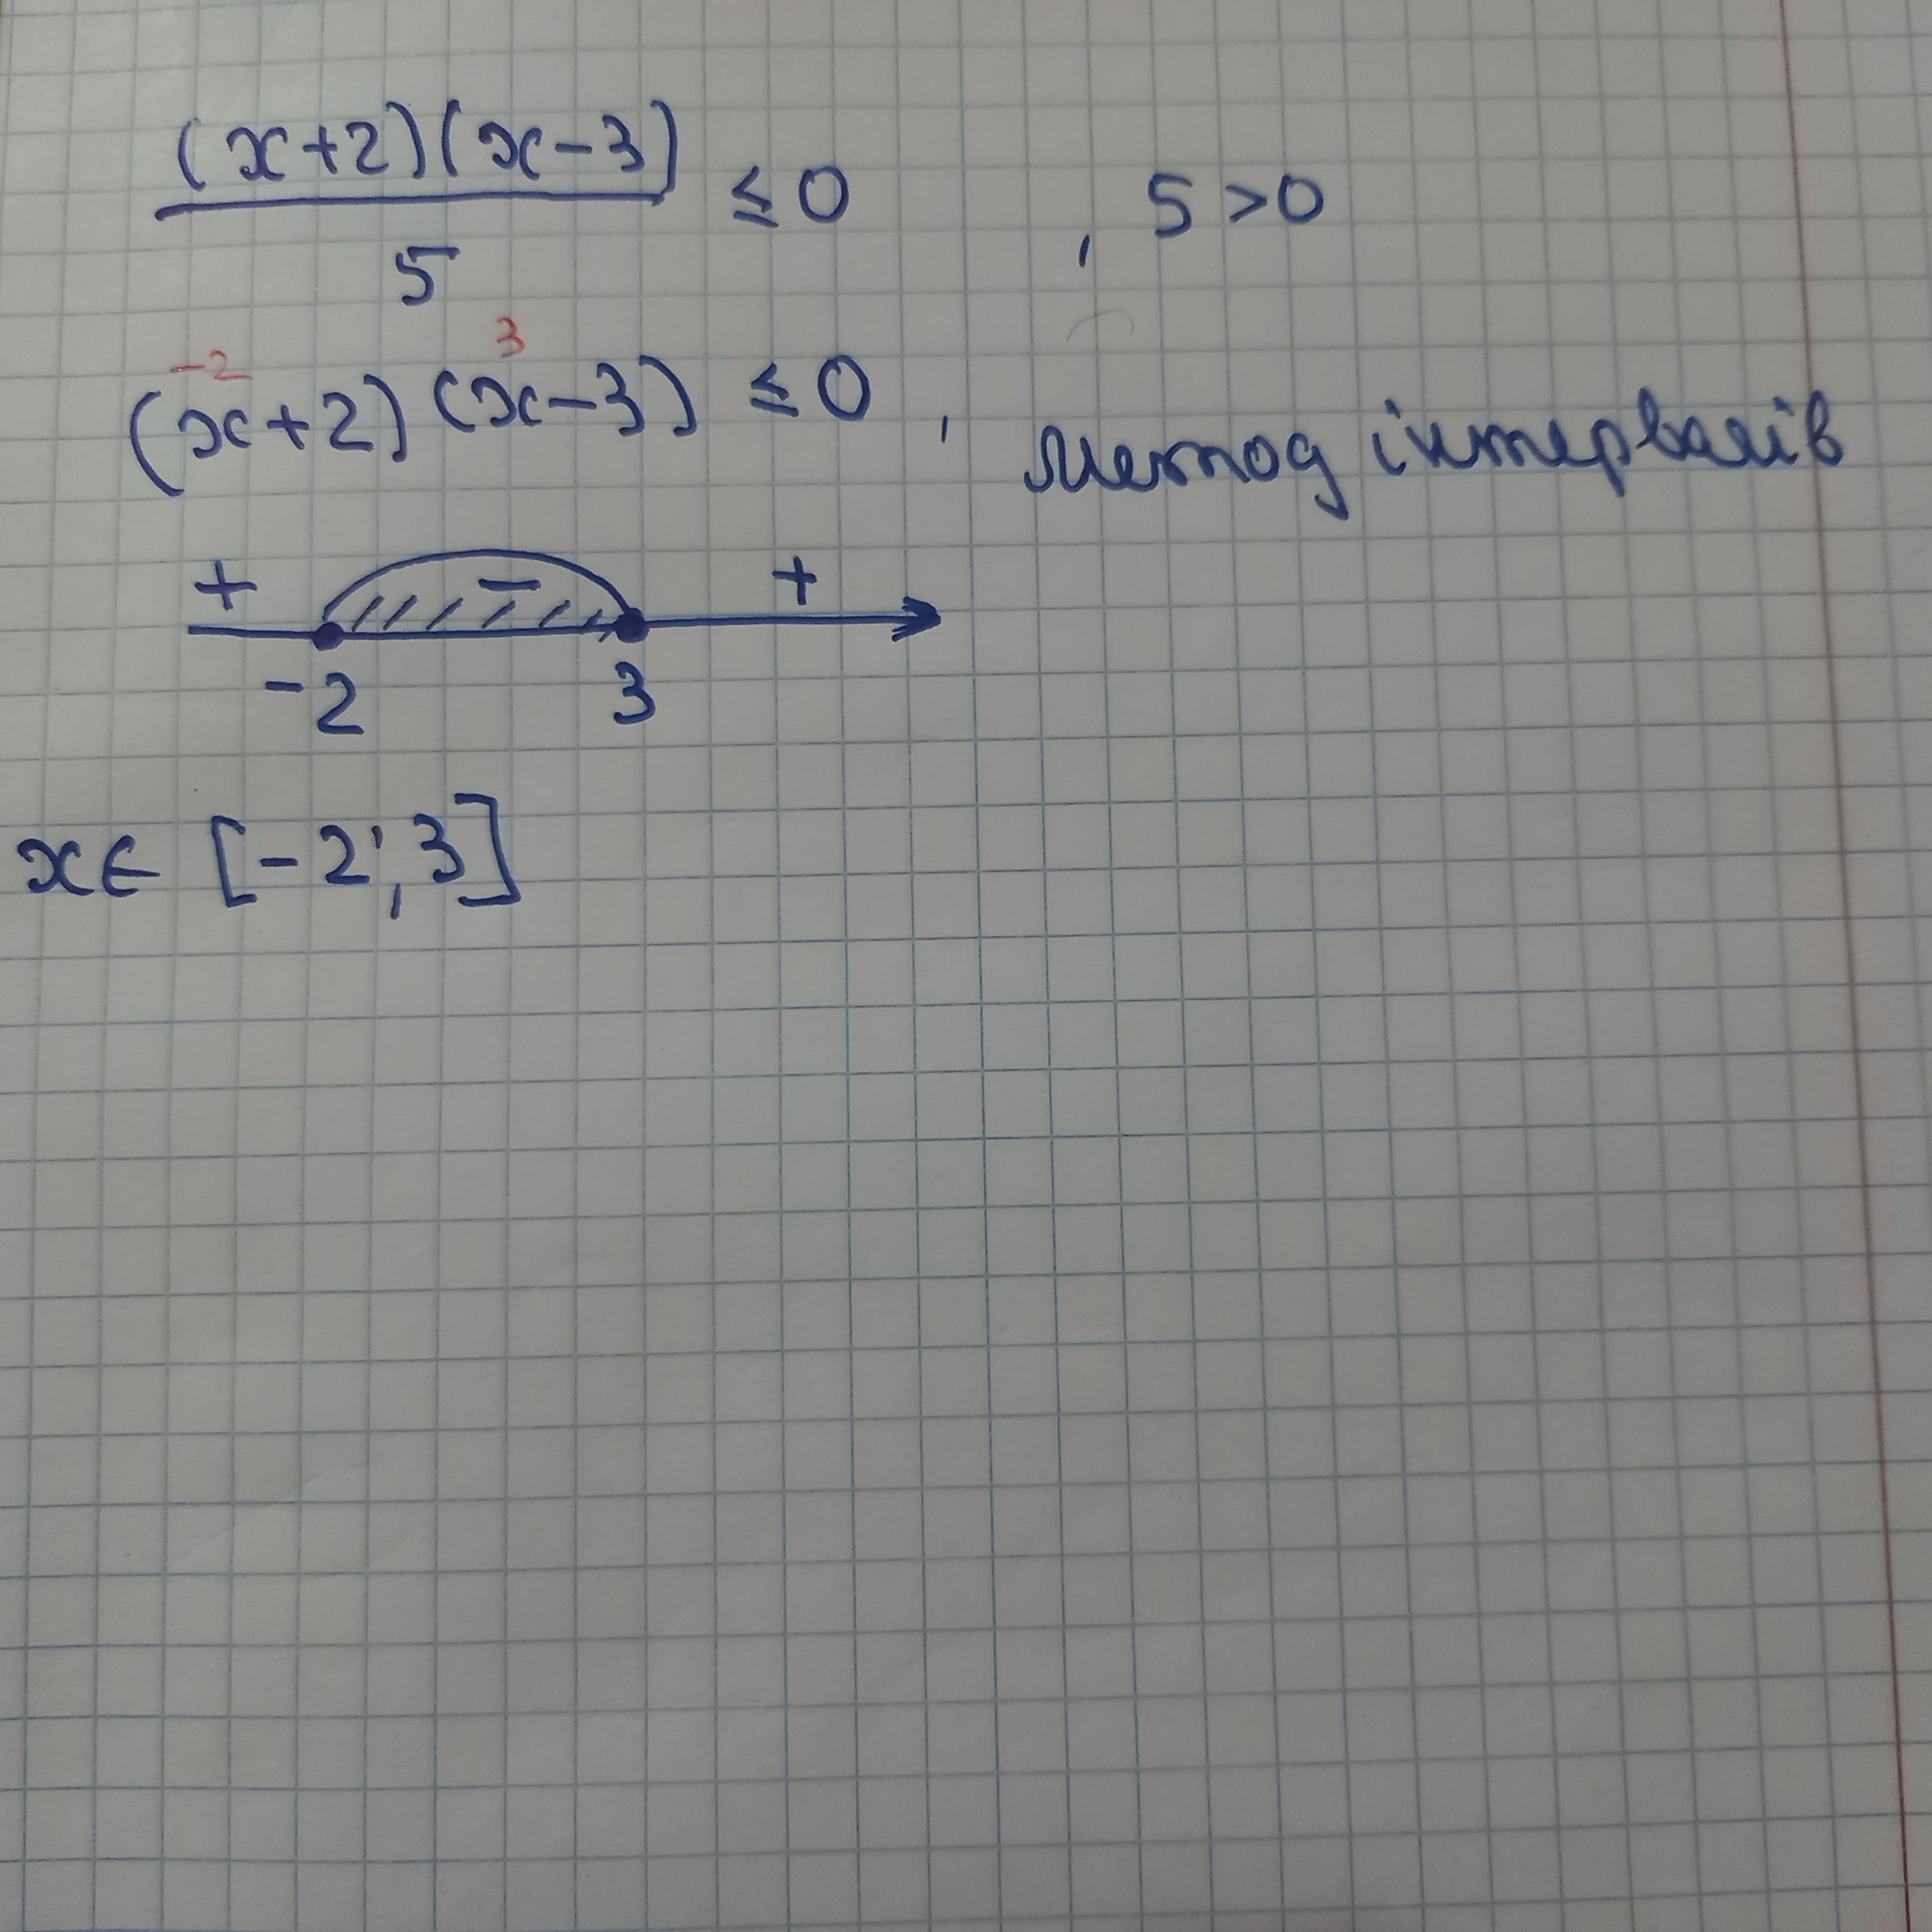 (x+2)(x-3)
≤ 0 , 5 > 0
5
-2 3
(x+2)(x-3) ≤ 0 , метод інтервалів
+ - +
-2 3
x ∈ [-2; 3]